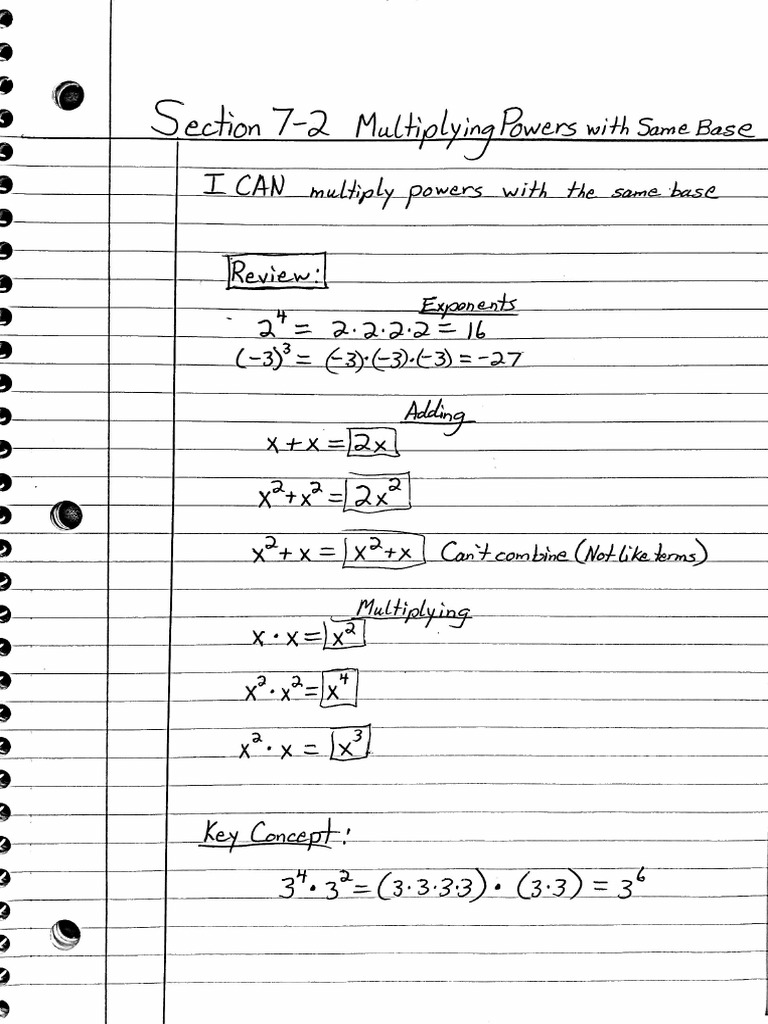 Section 7-2 Multiplying Powers with Same Base
I CAN multiply powers with the same base
Review:
Exponents
2⁴ = 2·2·2·2 = 16
(-3)³ = (-3)·(-3)·(-3) = -27
Adding
x + x = 2x
x² + x² = 2x²
x² + x = x² + x Can't combine (Not like terms)
Multiplying
x · x = x²
x² · x² = x⁴
x² · x = x³
Key Concept:
3⁴ · 3² = (3·3·3·3) · (3·3) = 3⁶